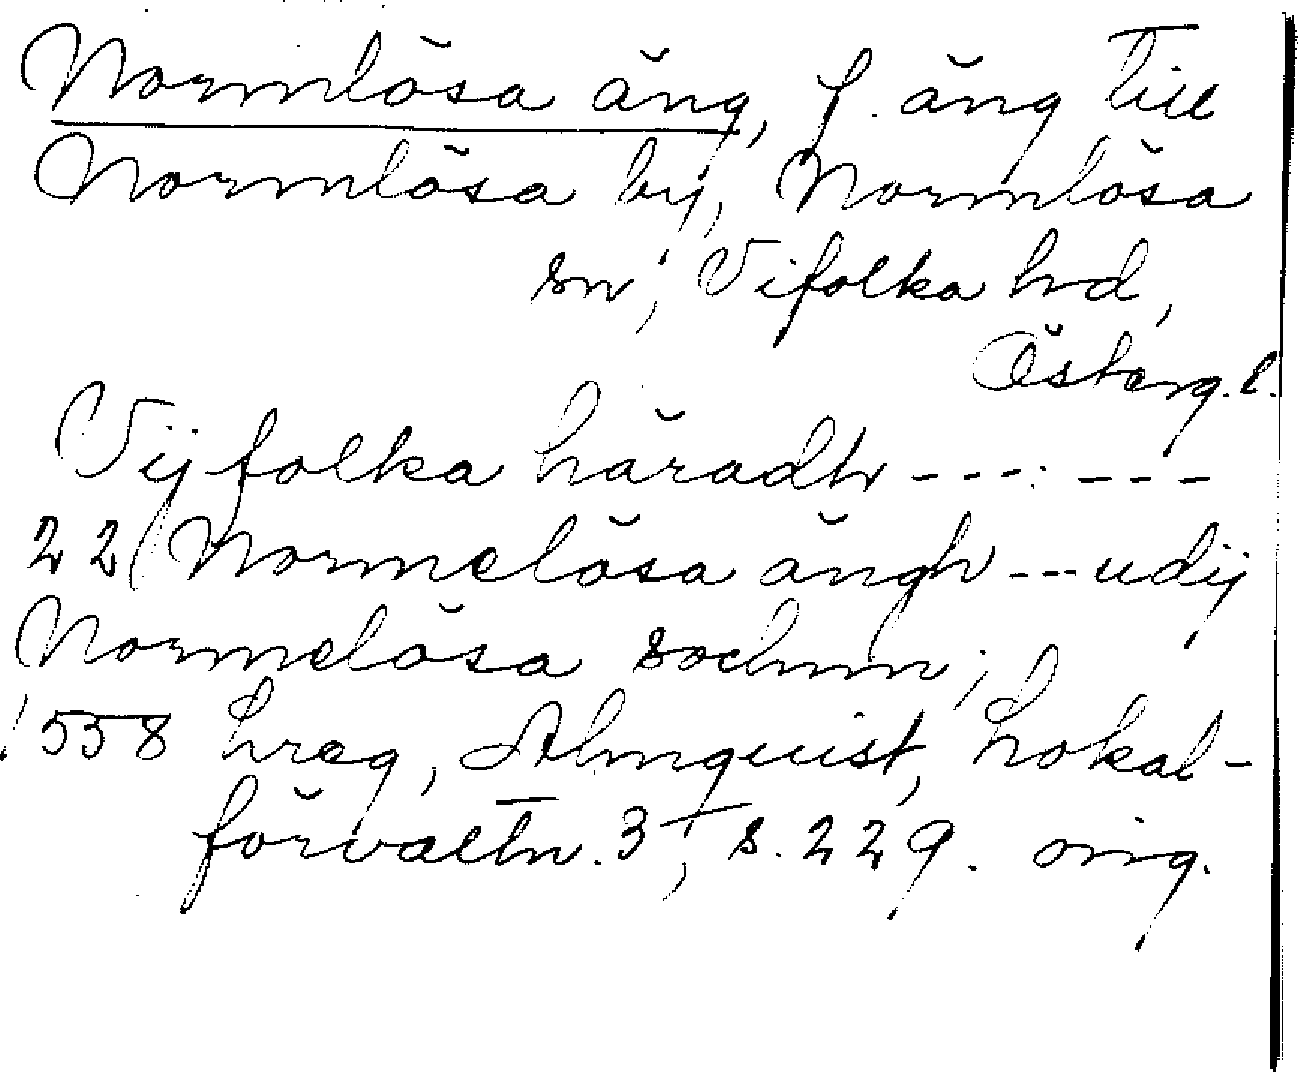 Normlösa äng, f. äng till
Normlösa by, Normlösa
sn, Vifolka hd,
Österg. l.
Vijfolka häradh ---:---
22/ Normelösa ängh --- udij
Normelösa sochnn;
1558 hreg, Almquist, Lokal-
förvaltn. 3, s. 229. orig.